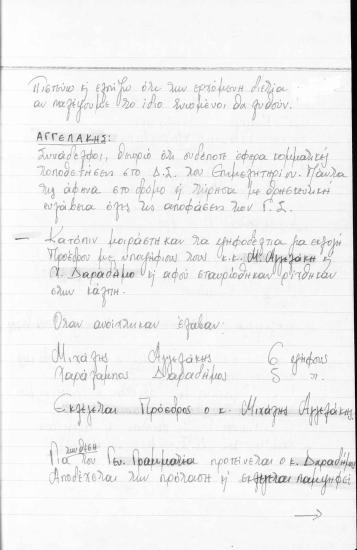 Πιστεύω ή ελπίζω ότι την ερχόμενη διετία
αν παλέψουμε το ίδιο ενωμένοι θα λυθούν.
ΑΓΓΕΛΑΚΗΣ:
Συνάδελφοι, θεωρώ ότι ουδέποτε έφερα κομματικές
τοποθετήσεις στο Δ.Σ. του Επιμελητηρίου. Πάντα
τις άφηνα στο δρόμο ή τήρησα με θρησκευτική
ευλάβεια όλες τις αποφάσεις των Γ.Σ.
— Κατόπιν μοιράστηκαν τα ψηφοδέλτια για εκλογή
Προέδρου με υποψήφιους τους κ.κ. Μ. Αγγελάκη ή
Χ. Δαραδήμο ή αφού σταυρώθηκαν ρίχθηκαν
στην κάλπη.
Όταν ανοίχτηκαν έλαβαν:
Μιχάλης Αγγελάκης 6 ψήφους
Χαράλαμπος Δαραδήμος 5 "
Εκλέγεται Πρόεδρος ο κ. Μιχάλης Αγγελάκης.
Για την θέση του Γεν. Γραμματέα προτείνεται ο κ. Δαραδήμος
Αποδέχεται την πρόταση ή εκλέγεται παμψηφεί
→